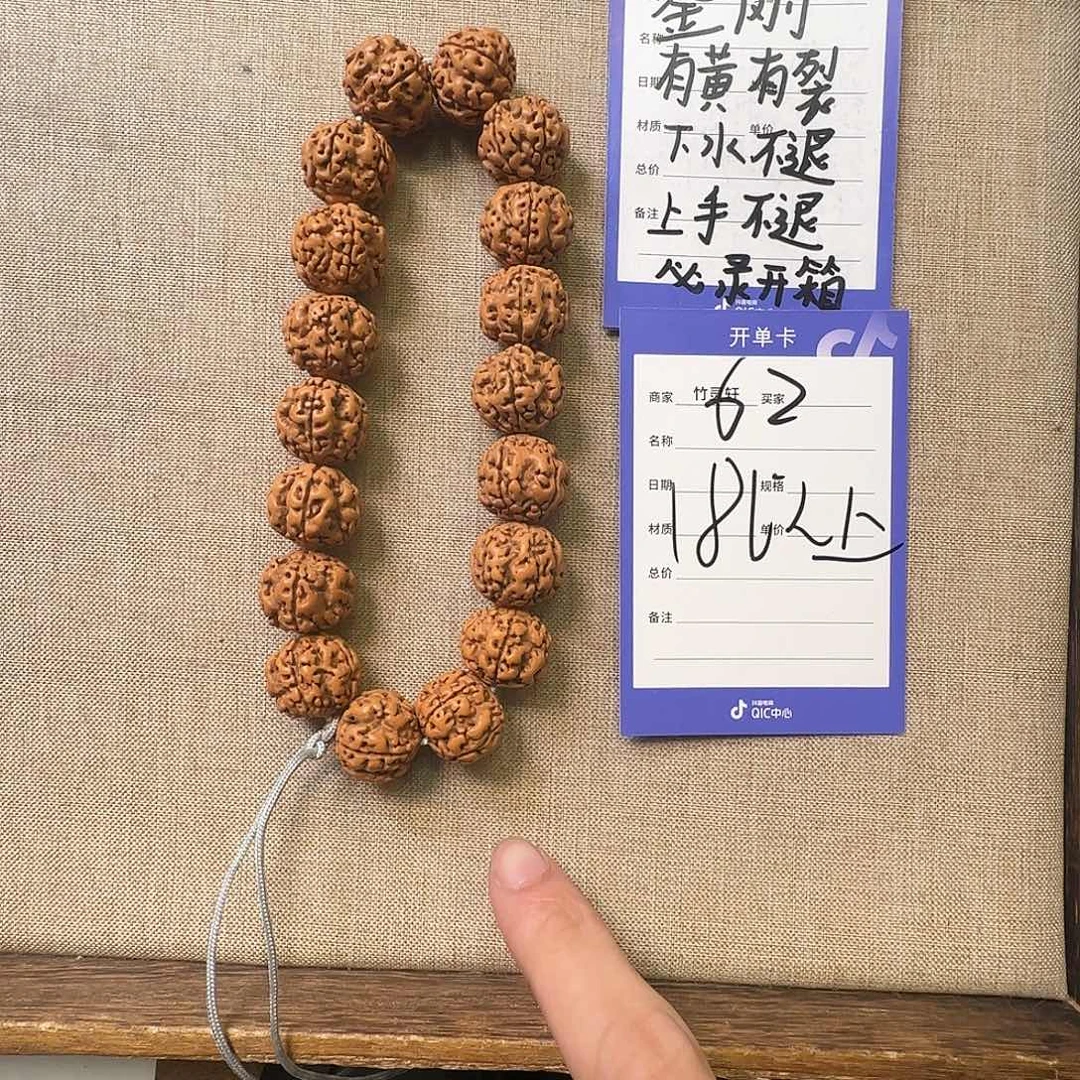 金刚
名称
有黄有裂
日期
材质 单价
下水不退
总价
上手不退
备注
必录开箱
抖音电商
QIC中心
开单卡
商家 竹灵轩 买家
62
名称
日期 规格
18以上
材质 单价
总价
备注
抖音电商
QIC中心